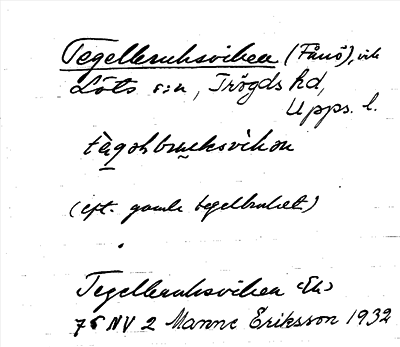 Tegelbruksviken (Fånö), vik
Löts s:n, Trögds hd,
Upps. l.
tàgəlbruksvikən
(eft. gamla tegelbruket)
Tegelbruksviken Ek
75 NV 2 Manne Eriksson 1932